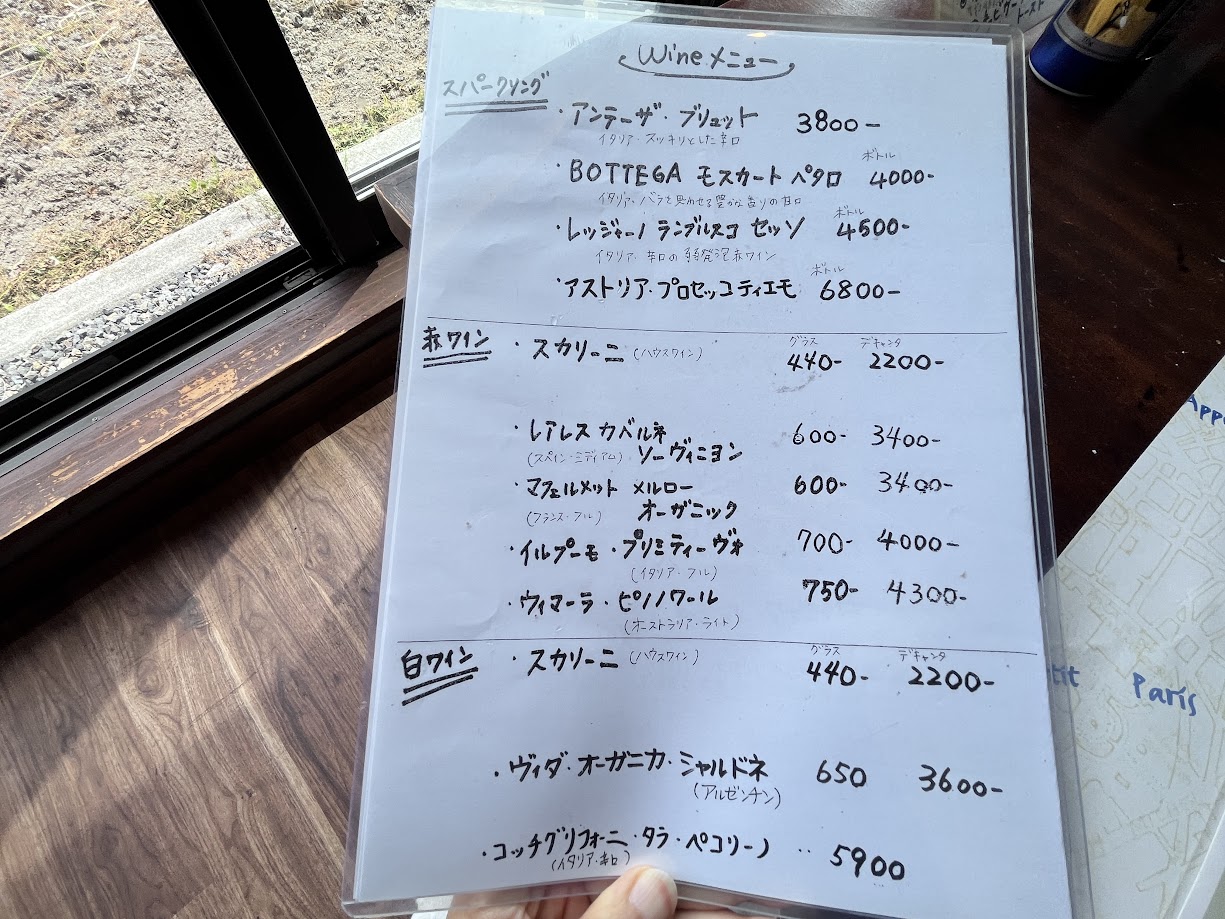 Wineメニュー
スパークリング
・アンテーザ・ブリュット 3800-
イタリア・スッキリとした辛口
ボトル
・BOTTEGA モスカート ペタロ 4000-
イタリア・バラを思わせる豊かな香りの甘口
ボトル
・レッジャーノ ランブルスコ セッソ 4500-
イタリア・辛口の弱発泡赤ワイン
ボトル
・アストリア・プロセッコティエモ 6800-
グラス デキャンタ
赤ワイン ・スカリーニ (ハウスワイン) 440- 2200-
・レアレス カベルネ 600- 3400-
(スペイン・ミディアム) ソーヴィニヨン
・マフェルメット メルロー 600- 3400-
(フランス・フル) オーガニック
・イルプーモ・プリミティーヴォ 700- 4000-
(イタリア・フル)
・ヴィマーラ・ピノノワール 750- 4300-
(オーストラリア・ライト)
グラス デキャンタ
白ワイン ・スカリーニ (ハウスワイン) 440- 2200-
・ヴィダ・オーガニカ・シャルドネ 650 3600-
(アルゼンチン)
・コッチグリフォーニ・タラ・ペコリーノ ・・ 5900
(イタリア・辛口)
トースト
Appe
tit Paris